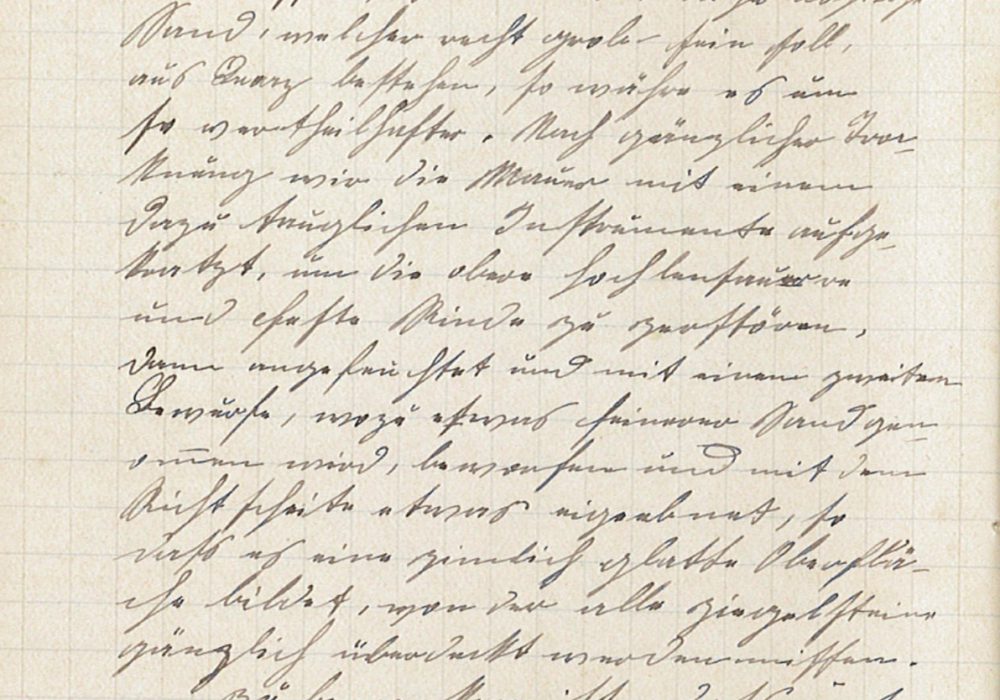 Sand, welcher recht grob sein soll,
aus Quarz bestehen, so währe es um
so vortheilhafter. Nach gänzlicher Troc-
knung wir die Mauer mit einem
dazu tauglichen Instrumente aufge-
kratzt, um die obere kochlensauere
und feste Rinde zu zerstören,
dann angefeuchtet und mit einem zweiten
Bewurfe, wozu etwas feinerer Sand gen-
ommen wird, beworfen und mit dem
Richtscheite etwas eigeebnet, so
dass es eine zimlich glatte Oberflä-
che bildet, von der alle Ziegelsteine
gänzlich überdeckt werden missen.